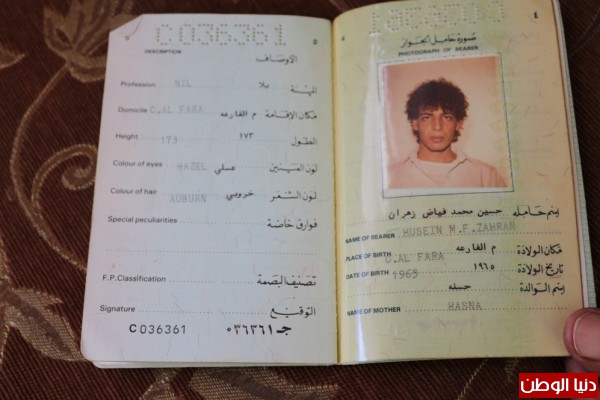 C036361
٥
5
DESCRIPTION
الأوصاف
Profession NIL بلا المهنة
Domicile C.AL FARA م الفارعه مكان الإقامة
Height 173 ١٧٣ الطول
Colour of eyes HAZEL عسلي لون العينين
Colour of hair AUBURN خروبي لون الشعر
Special peculiarities فوارق خاصة
F.P.Classification تصنيف البصمة
Signature التوقيع
C 036361 جـ ٠٣٦٣٦١
4
٤
صورة حامل الجواز
PHOTOGRAPH OF BEARER
إسم حامله حسين محمد فياض زهران
NAME OF BEARER HUSEIN M.F.ZAHRAN
مكان الولادة م الفارعه
PLACE OF BIRTH C.AL FARA
تاريخ الولادة ١٩٦٥
DATE OF BIRTH 1965
إسم الوالدة حسنه
NAME OF MOTHER HASNA
دنيا الوطن